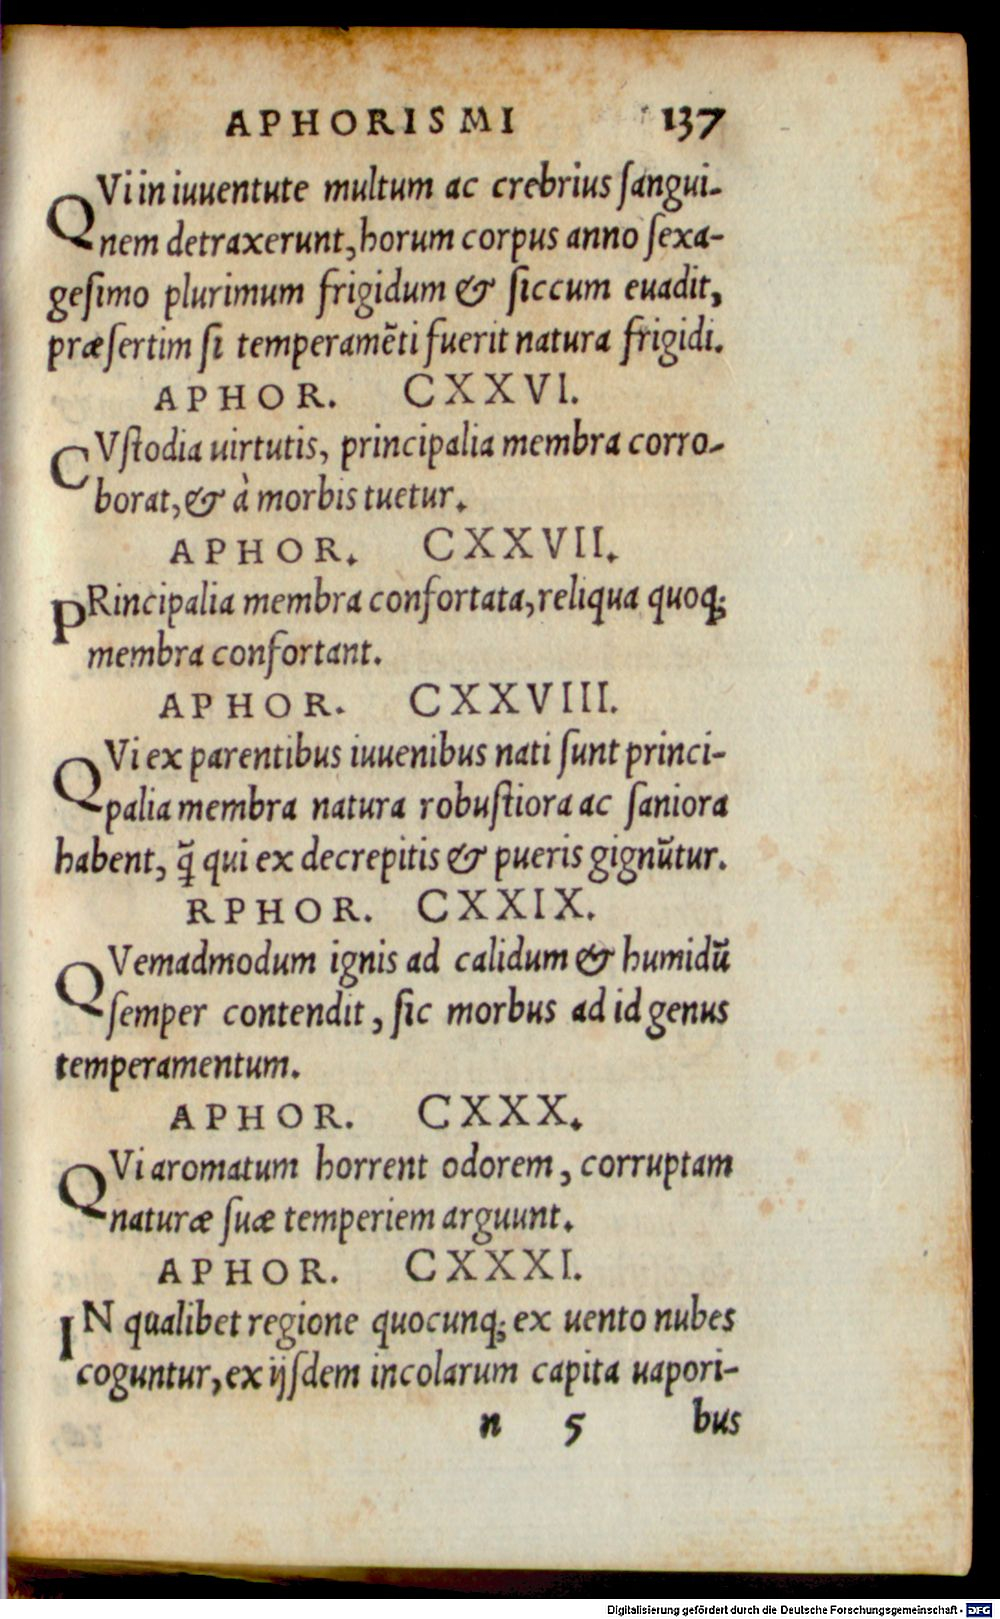 APHORISMI 137
QVi in iuuentute multum ac crebrius ſangui-
nem detraxerunt, horum corpus anno ſexa-
geſimo plurimum frigidum & ſiccum euadit,
præſertim ſi temperamẽti fuerit natura frigidi.
APHOR. CXXVI.
CVſtodia uirtutis, principalia membra corro-
borat, & à morbis tuetur.
APHOR. CXXVII.
PRincipalia membra confortata, reliqua quoq;
membra confortant.
APHOR. CXXVIII.
QVi ex parentibus iuuenibus nati ſunt princi-
palia membra natura robuſtiora ac ſaniora
habent, q̃ qui ex decrepitis & pueris gignũtur.
RPHOR. CXXIX.
QVemadmodum ignis ad calidum & humidũ
ſemper contendit, ſic morbus ad id genus
temperamentum.
APHOR. CXXX.
QVi aromatum horrent odorem, corruptam
naturæ ſuæ temperiem arguunt.
APHOR. CXXXI.
IN qualibet regione quocunq; ex uento nubes
coguntur, ex ijſdem incolarum capita uapori-
n 5 bus
Digitalisierung gefördert durch die Deutsche Forschungsgemeinschaft - DFG